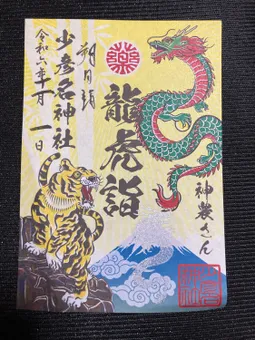 朔日詣
龍虎詣
神農さん
少彦名神社
令和六年一月一日